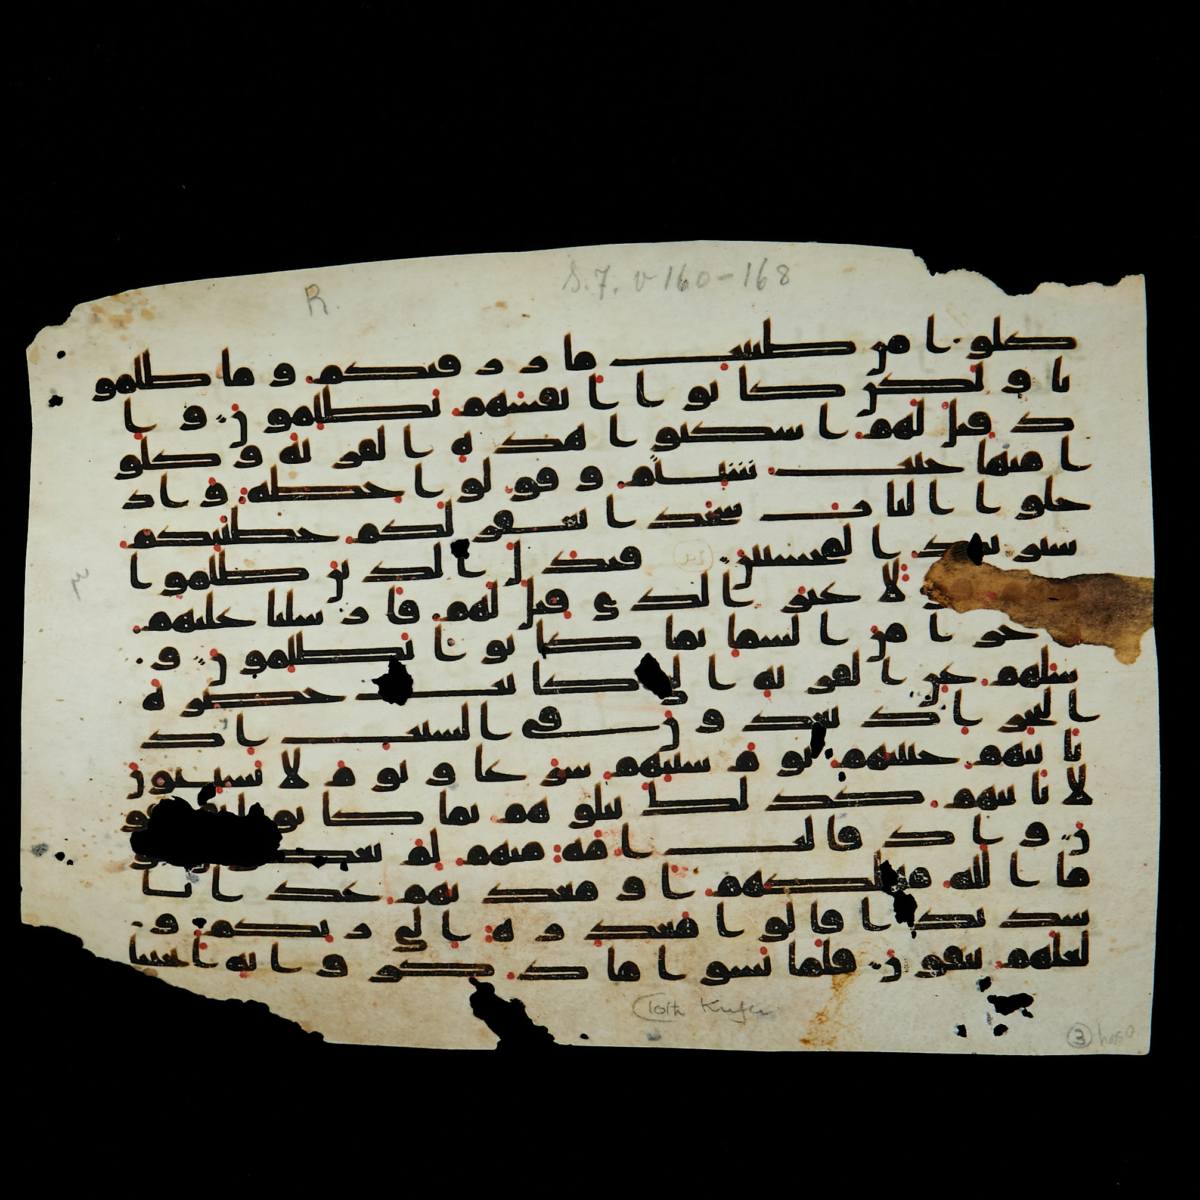 R. S.7. v 160-168
كلوا من طيبت ما رزقنكم وما ظلمو
نا ولكن كانوا انفسهم يظلمون وا
ذ قيل لهم اسكنوا هذه القرية وكلو
ا منها حيث شئتم وقولوا حطة واد
خلوا الباب سجدا نغفر لكم خطيتكم
سنزيد المحسنين فبدل الذين ظلموا
لا غير الذي قيل لهم فارسلنا عليهم
جزا من السما بما كانوا يظلمون و
سلهم عن القرية التي كانت حضرة
البحر اذ يعدون في السبت اذ
تاتيهم حيتنهم يوم سبتهم شرعا ويوم لا يسبتون
لا تاتيهم كذلك نبلوهم بما كانوا
ن واذ قالت امة منهم لم
ما الله مهلكهم او معذبهم عذابا
شديدا قالوا معذرة الى ربكم و
لعلهم يتقون فلما نسوا ما ذكروا به انجينا
10th Kufic
3